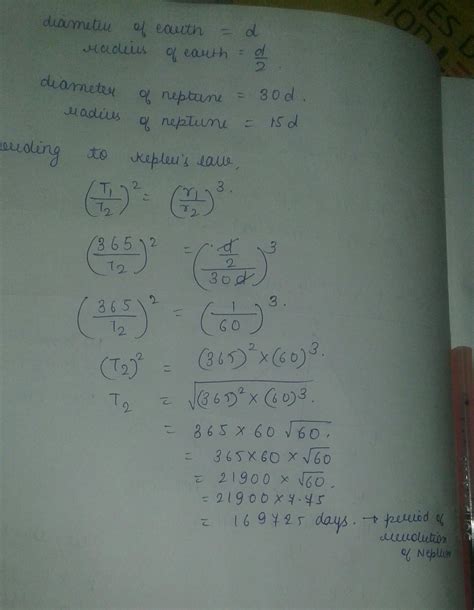 IES D
TION
diameter of earth = d
radius of earth = d/2.
diameter of neptune = 30d.
radius of neptune = 15d
to Kepler's law,
(T1/T2)^2 = (r1/r2)^3.
(365/T2)^2 = (d/2/30d)^3
(365/T2)^2 = (1/60)^3.
(T2)^2 = (365)^2 × (60)^3.
T2 = √(365)^2 × (60)^3.
= 365 × 60 √60.
= 365×60 × √60
= 21900 × √60.
= 21900 × 7.75
= 169725 days. → period of
revolution
of Neptune